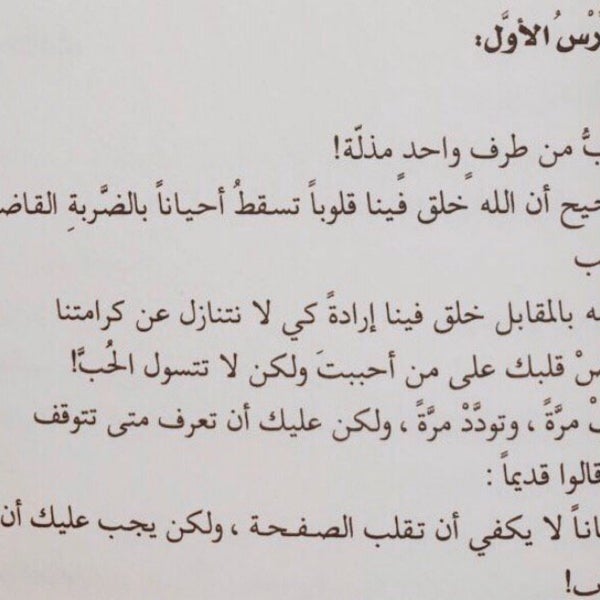 رْسُ الأوَّل:
بُّ من طرفٍ واحد مذلّة!
حيح أن الله خلق فينا قلوباً تسقطُ أحياناً بالضَّربةِ القاض
ب
ه بالمقابل خلق فينا إرادةً كي لا نتنازل عن كرامتنا
ضْ قلبك على من أحببتَ ولكن لا تتسول الحُبَّ!
ْ مرَّةً ، وتودَّدْ مرَّةً ، ولكن عليك أن تعرف متى تتوقف
قالوا قديماً :
اناً لا يكفي أن تقلب الصفحة ، ولكن يجب عليك أن
ب!